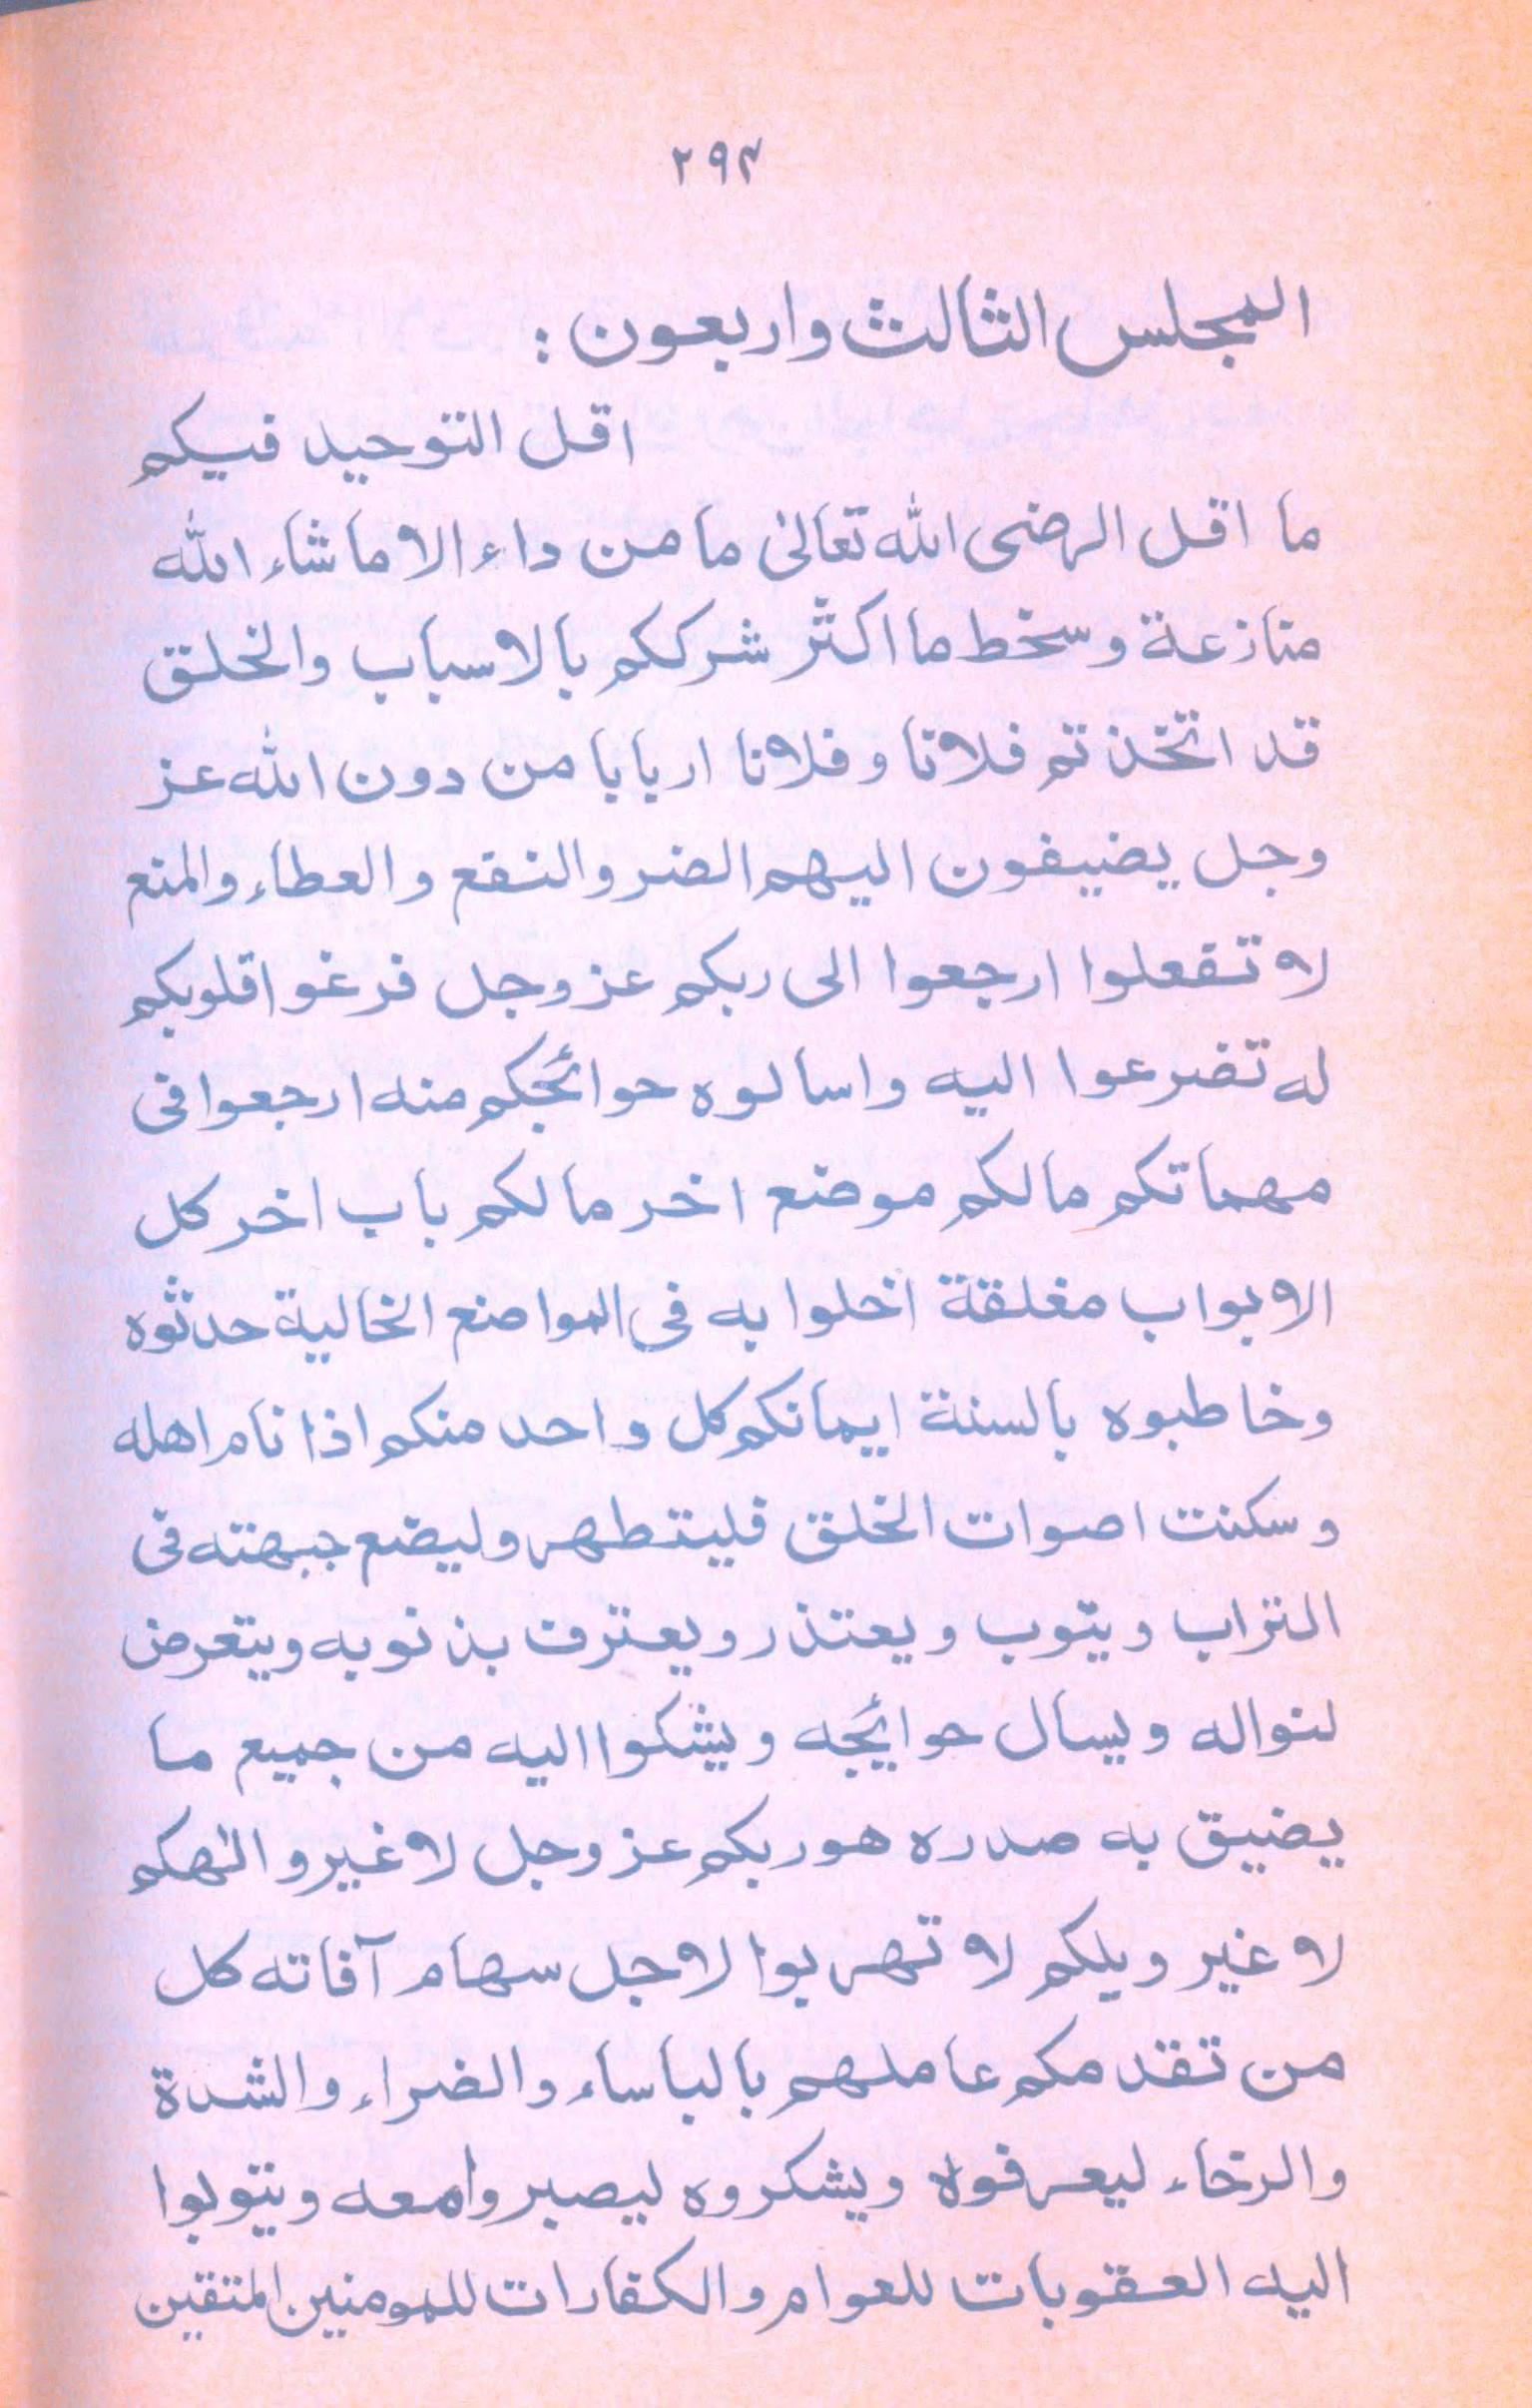 ٢٩٣
المجلس الثالث واربعون :
اقل التوحيد فيكم
ما اقل الرضى الله تعالیٰ ما من داء الا ما شاء الله
منازعة وسخط ما اكثر شرككم بالاسباب والخلق
قد اتخذتم فلانا وفلانا اربابا من دون الله عز
وجل يضيفون اليهم الضر والنفع والعطاء والمنع
لا تفعلوا ارجعوا الى ربكم عز وجل فرغوا قلوبكم
له تضرعوا اليه واسالوه حوائجكم منه ارجعوا فى
مهماتكم مالكم موضع اخر مالكم باب اخر كل
الابواب مغلقة اخلوا به فى المواضع الخالية حدثوه
وخاطبوه بالسنة ايمانكم كل واحد منكم اذا نام اهله
وسكنت اصوات الخلق فليتطهر وليضع جبهته فى
التراب ويتوب ويعتذر ويعترف بذنوبه ويتعرض
لنواله ويسال حوايجه ويشكوا اليه من جميع ما
يضيق به صدره هو ربكم عز وجل لا غير والٰهكم
لا غير ويلكم لا تهربوا لاجل سهام آفاته كل
من تقدمكم عاملهم بالباساء والضراء والشدة
والرخاء ليعرفوه ويشكروه ليصبروا معه ويتوبوا
اليه العقوبات للعوام والكفارات للمومنين المتقين